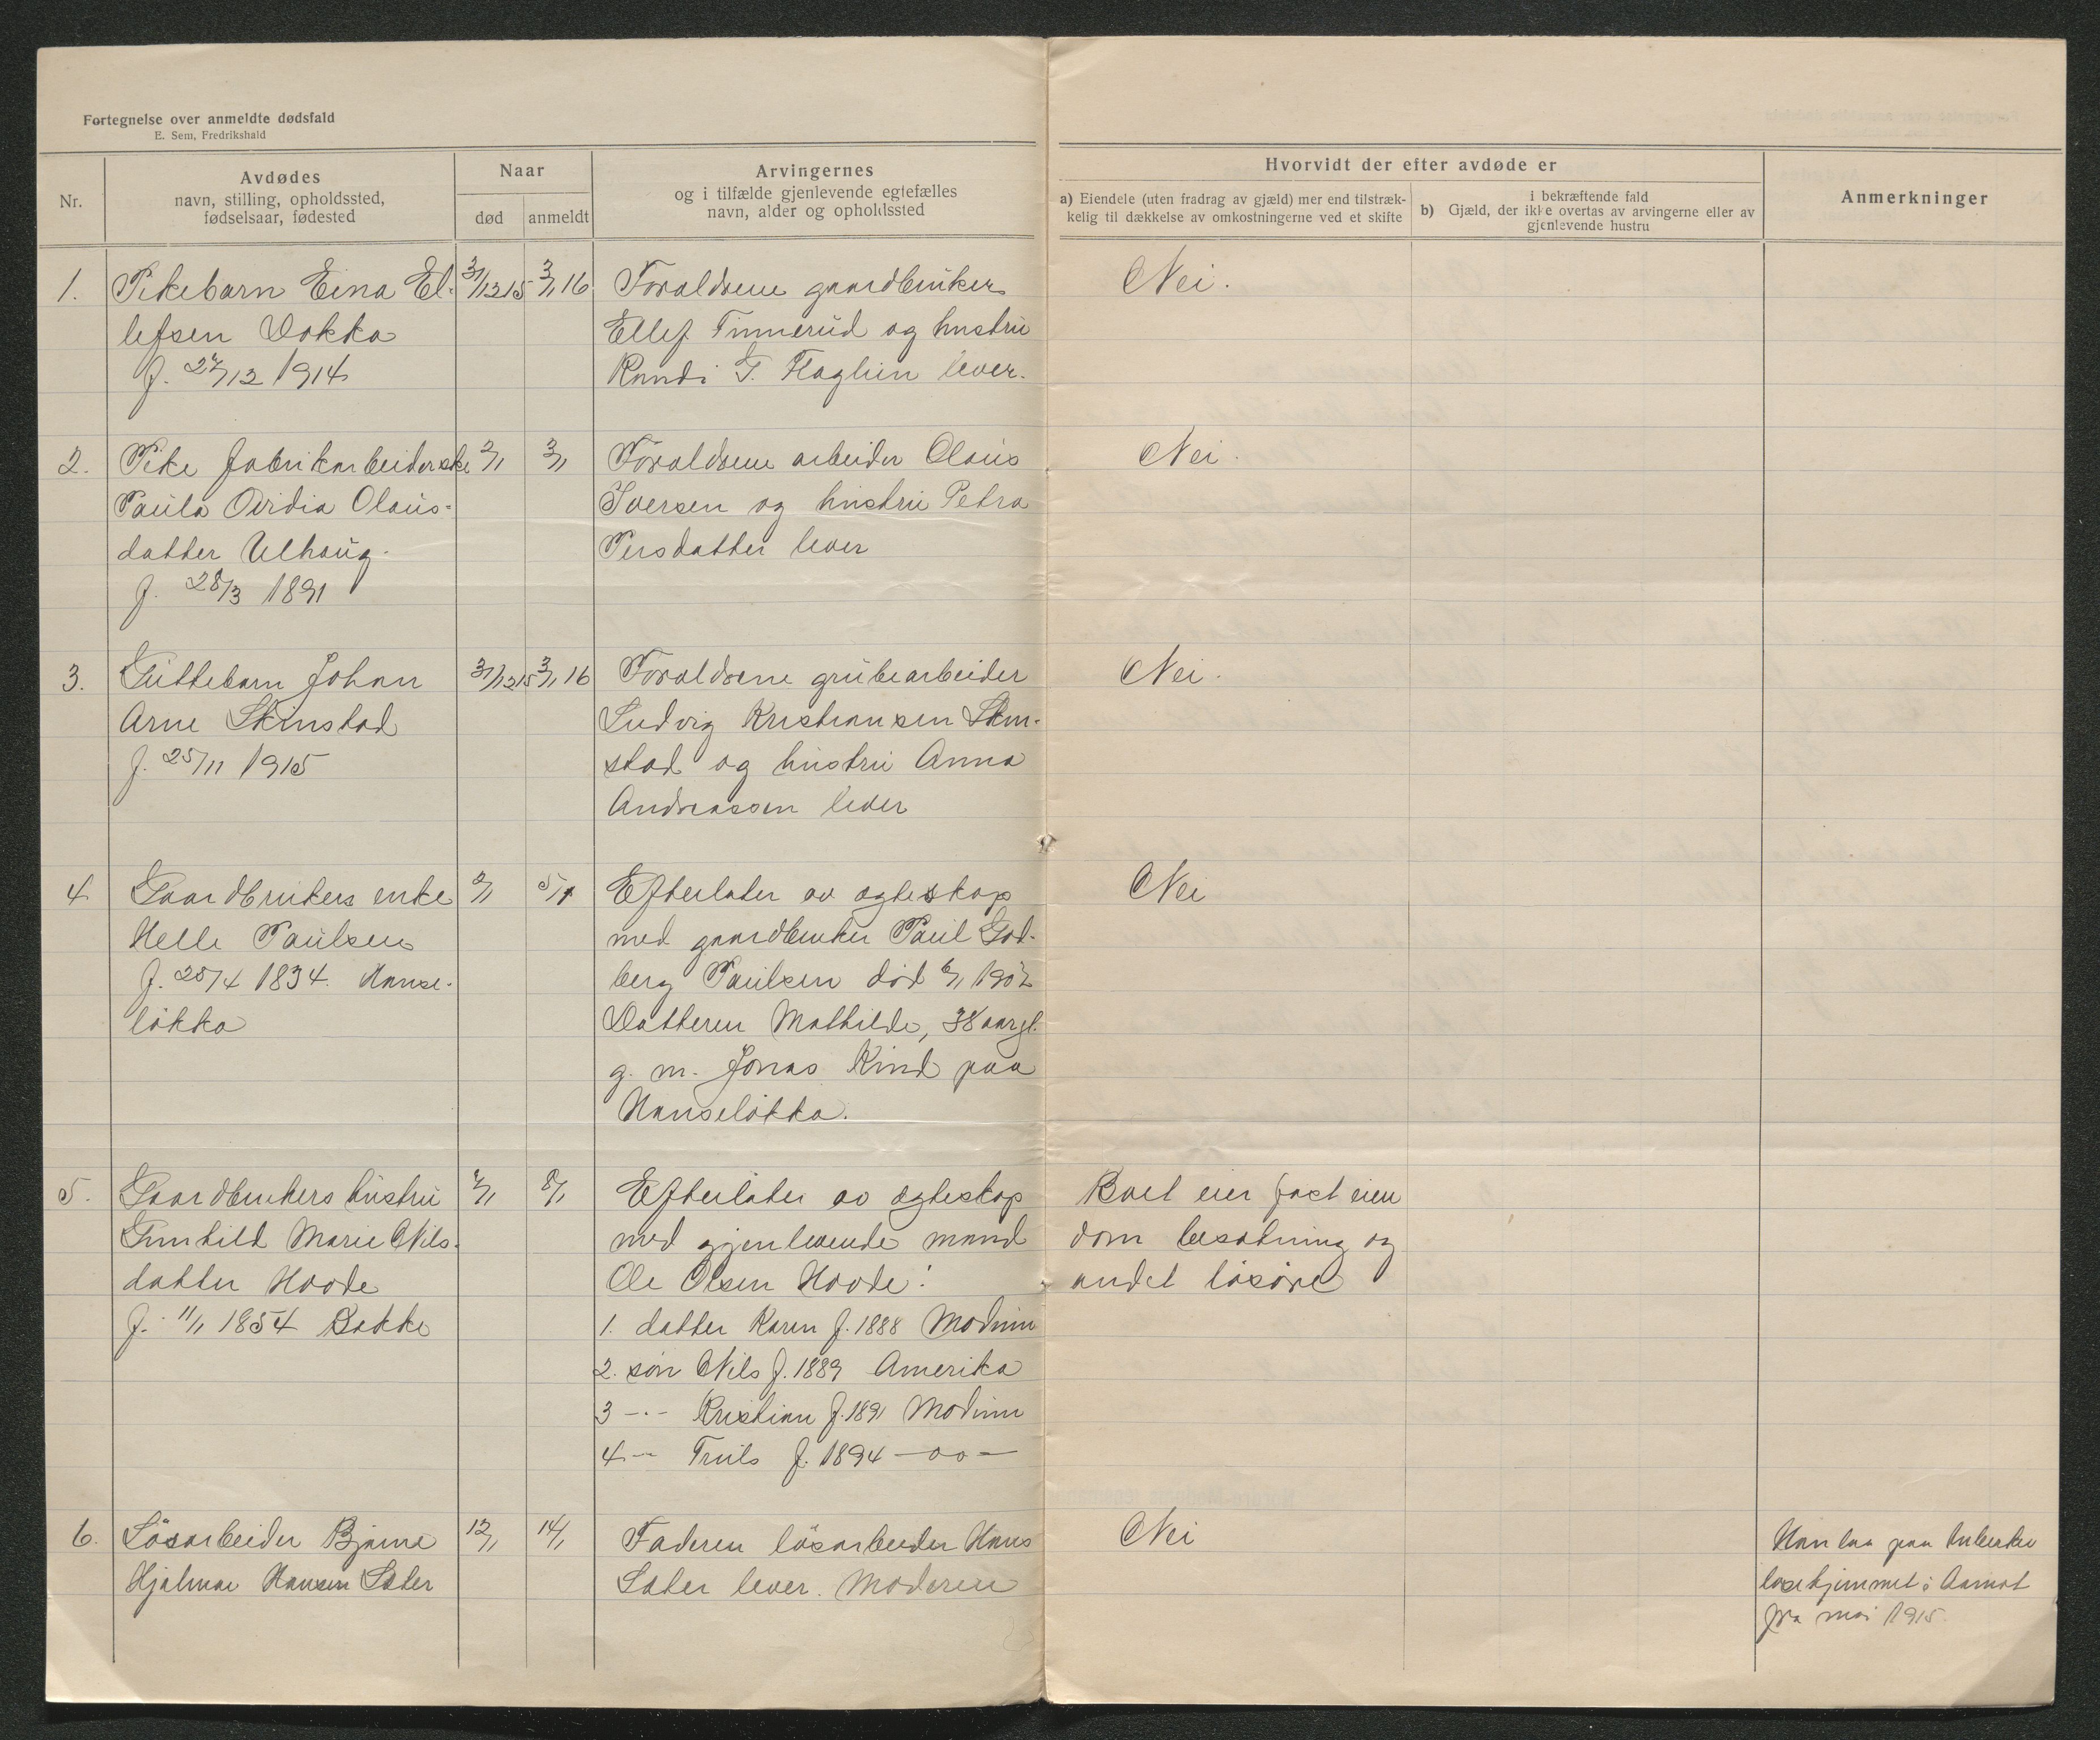 Fortegnelse over anmeldte dødsfald
E. Sem, Fredrikshald
Nr.
Avdødes
navn, stilling, opholdssted,
fødselsaar, fødested
Naar
død
anmeldt
Arvingernes
og i tilfælde gjenlevende egtefælles
navn, alder og opholdssted
Hvorvidt der efter avdøde er
a) Eiendele (uten fradrag av gjæld) mer end tilstræk-
kelig til dækkelse av omkostningerne ved et skifte
i bekræftende fald
b) Gjæld, der ikke overtas av arvingerne eller av
gjenlevende hustru
Anmerkninger
1.
Pikebarn Eina El-
lefsen Dokka
f. 27/12 1914
31/12 15
3/1 16
Forældrene gaardbruker
Ellef Finnerud og hustru
Randi G. Flaglien lever.
Nei.
2.
Pike fabrikarbeiderske
Paula Ovidia Olaus-
datter Ulhaug.
f. 28/3 1891
2/1
3/1
Forældrene arbeider Olaus
Iversen og hustru Petra
Persdatter lever
Nei.
3.
Guttebarn Johan
Arne Skinstad
f. 25/11 1915
31/12 15
3/1 16
Forældrene grubearbeider
Ludvig Kristiansen Skin-
stad og hustru Anna
Andreassen lever
Nei.
4.
Gaardbrukers enke
Helle Paulsen
f. 25/4 1834. Hanse-
løkka
2/1
5/1
Efterlater av egteskap
med gaardbruker Paul God-
berg Paulsen død 6/1 1902
Datteren Mathilde, 38 aar gl.
g. m. Jonas Kind paa
Hanseløkka.
Nei
5.
Gaardbrukers hustru
Gunhild Marie Nils-
datter Hovde
f. 11/1 1854 Bakke
7/1
8/1
Efterlater av egteskap
med gjenlevende mand
Ole Olsen Hovde:
1. datter Karen f. 1888 Modum
2. søn Nils f. 1889 Amerika
3 -"- Kristian f. 1891 Modum
4 -"- Truls f. 1894 -oo-
Boet eier fast eien
dom besætning og
andet løsøre
6.
Løsarbeider Bjarne
Hjalmar Hansen Sæter
12/1
14/1
Faderen løsarbeider Hans
Sæter lever. Moderen
Nei
Han laa paa tuberku
losehjemmet i Aamot
fra mai 1915.